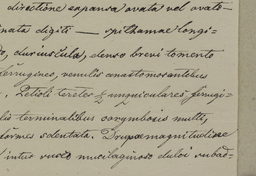 directione expansa ovata vel ovato-
inata digiti — spithamae longi-
do, duriuscula, denso brevi tomento
ferrugineo, venulis anastomosantibus
Petioli teretes unguiculares ferrugi-
lis terminalibus corymbosis multi,
formes 5dentata. Drupae magnitudine
intus vasto mucilaginoso dulci subad-